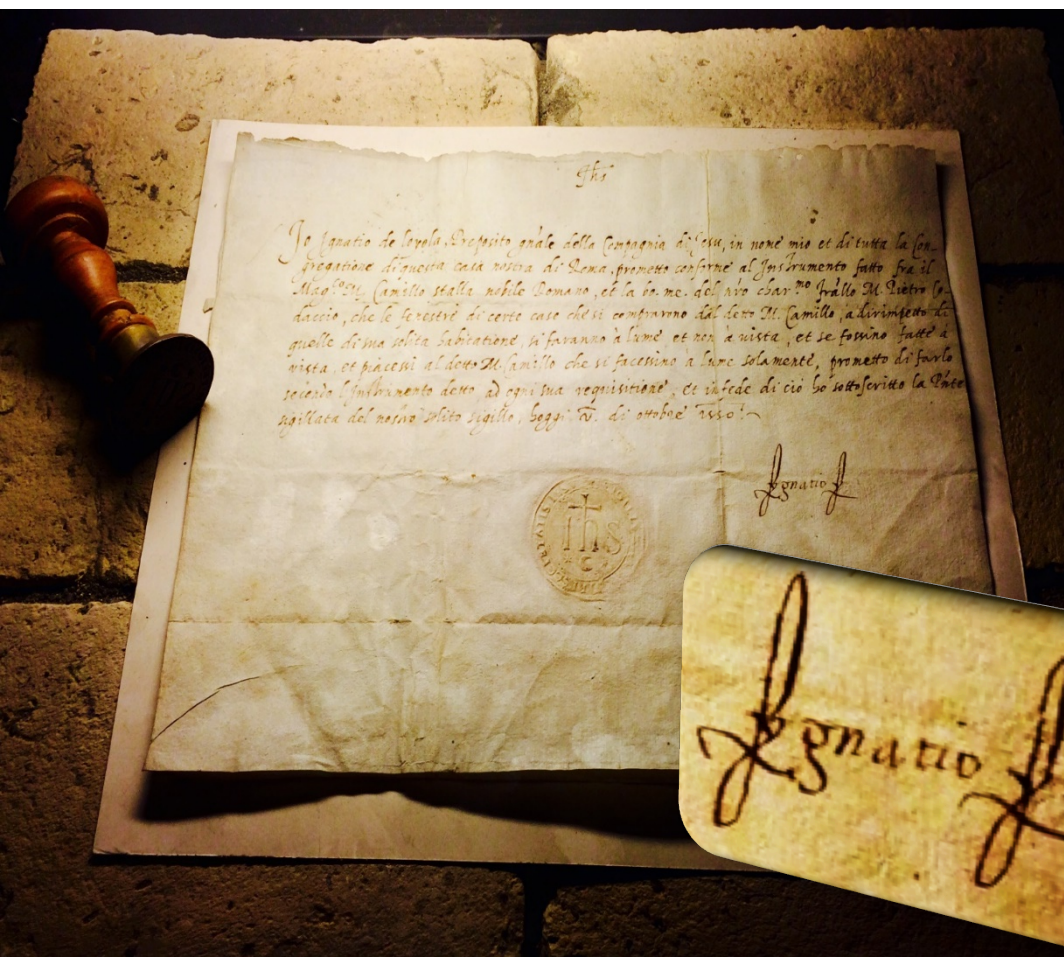 Jhs
Jo Ignatio de loyola Preposito gnäle della Compagnia di Jesu, in nome mio et di tutta la Con-
gregatione di questa casa nostra di Roma, prometto conforme al Instrumento fatto fra il
Magco M. Camillo stalla nobile Romano, et la bo. me. del nro charmo frallo M. Pietro Co-
daccio, che le fenestre di certe case che si comprarono dal detto M. Camillo, a dirimpetto di
quelle di sua solita habitatione, si faranno à lume, et non a vista, et se fossino fatte à
vista, et piacesi al detto M. Camillo che si facessino à lume solamente, prometto di farlo
secondo l'Instrumento detto ad ogni sua requisitione, et in fede di ciò ho sottoscritto la Pnte
sigillata del nostro solito sigillo, hoggi di ottobre 1550
Ignatio
ihs
Ignatio